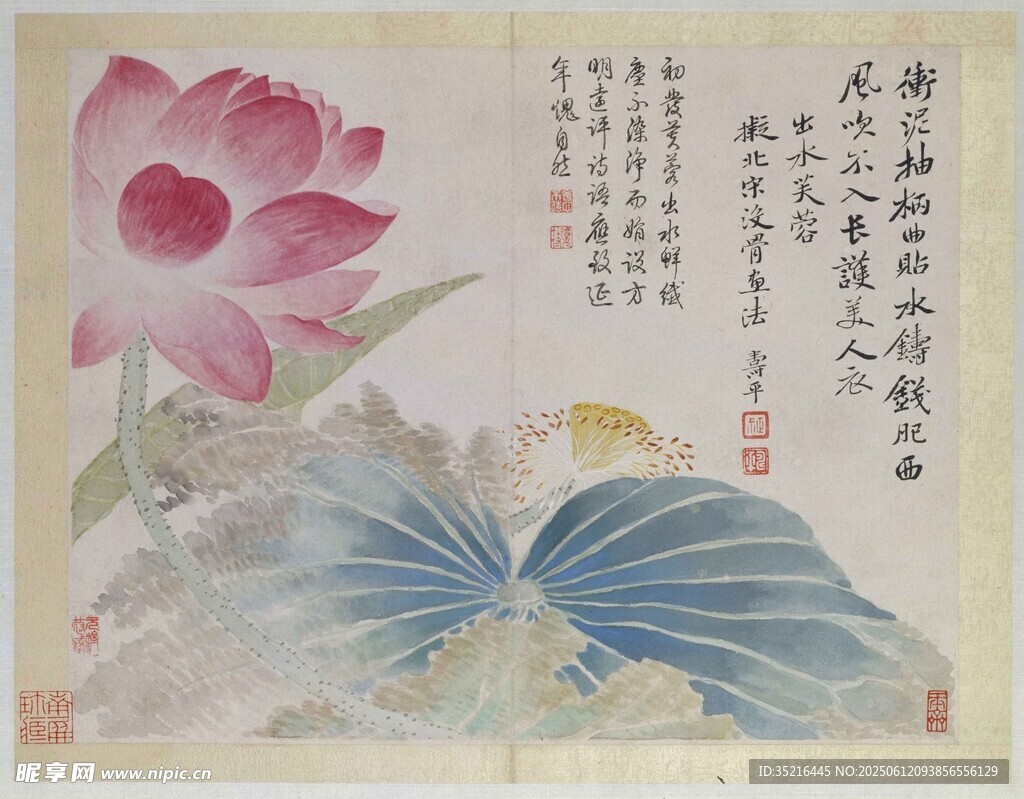 衝泥抽柄曲貼水鑄錢肥西
風吹不入长護美人衣
出水芙蓉
擬北宋没骨画法 壽平
初發芙蓉出水鲜纖
塵不染淨而娟设方
明遠评詩語應致延
年愧自然
昵享网 www.nipic.cn
ID:35216445 NO:20250612093856556129